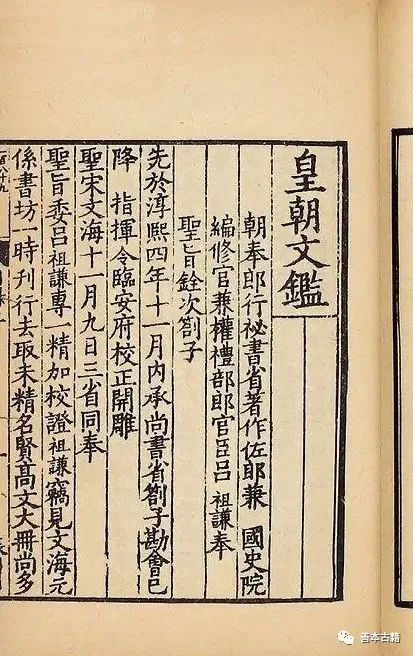 皇朝文鑑
朝奉郎行祕書省著作佐郎兼 國史院
編修官兼權禮部郎官臣呂 祖謙 奉
聖旨銓次劄子
先於淳熙四年十一月內承尚書省劄子勘會已
降 指揮令臨安府校正開雕
聖宋文海十一月九日三省同奉
聖旨委呂祖謙專一精加校證祖謙竊見文海元
係書坊一時刊行去取未精名賢高文大冊尚多
善本古籍